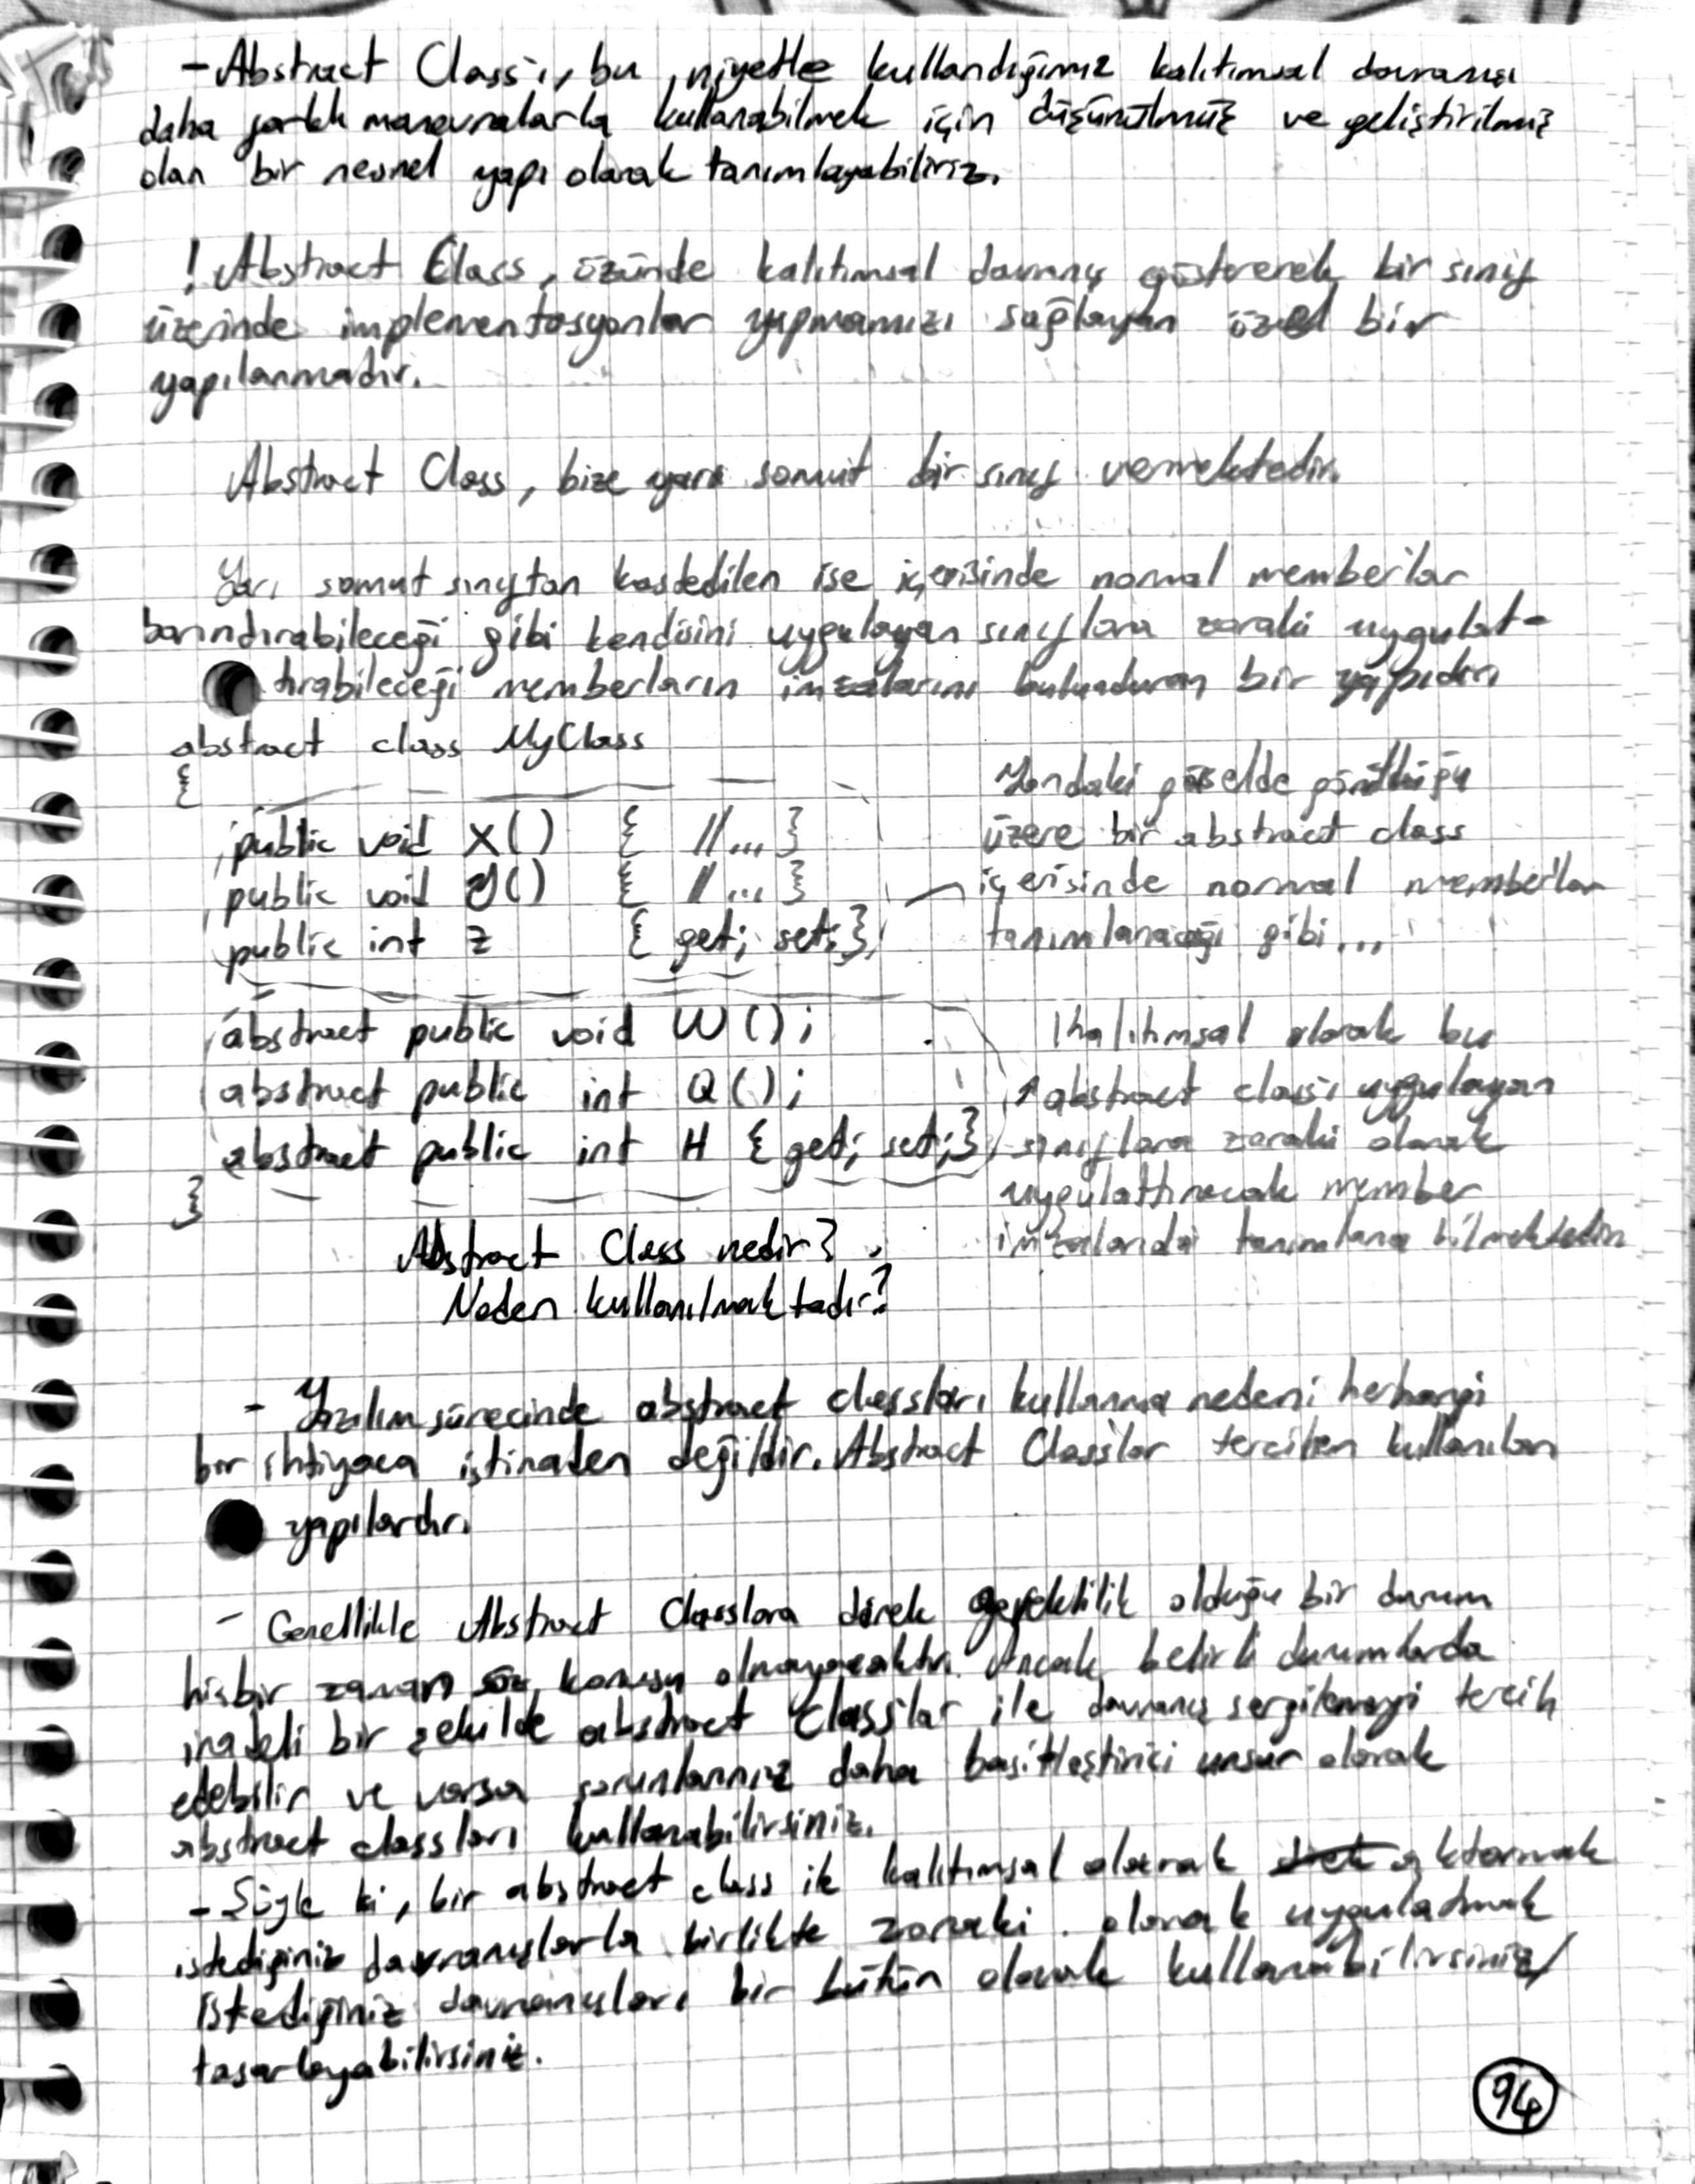 - Abstract Class'ı, bu niyetle kullandığımız kalıtımsal davranışı
daha farklı manevralarla kullanabilmek için düşünülmüş ve geliştirilmiş
olan bir nesnel yapı olarak tanımlayabiliriz.
! Abstract Class, özünde kalıtımsal davranış göstererek bir sınıf
üzerinde implementasyonlar yapmamızı sağlayan özel bir
yapılanmadır.
Abstract Class, bize yarı somut bir sınıf vermektedir.
Yarı somut sınıftan kastedilen ise içerisinde normal member'lar
barındırabileceği gibi kendisini uygulayan sınıflara zoraki uygulat-
tırabileceği memberların imzalarını bulunduran bir yapıdır.
abstract class MyClass
{
public void X() { //... }
public void Y() { //... }
public int Z { get; set; }
Yandaki görselde görüldüğü
üzere bir abstract class
içerisinde normal member'lar
tanımlanacağı gibi...
abstract public void W();
abstract public int Q();
abstract public int H { get; set; }
}
kalıtımsal olarak bu
abstract class'ı uygulayan
sınıflara zoraki olarak
uygulattıracak member
imzalarıda tanımlana bilmektedir
Abstract Class nedir?
Neden kullanılmaktadır?
- Yazılım sürecinde abstract classları kullanma nedeni herhangi
bir ihtiyaca istinaden değildir. Abstract Class'lar tercihen kullanılan
yapılardır.
- Genellikle Abstract Classlara direk gereklilik olduğu bir durum
hiçbir zaman söz konusu olmayacaktır. Ancak belirli durumlarda
iradeli bir şekilde abstract class'lar ile davranış sergilemeyi tercih
edebilir ve varsa sorunlarınız daha basitleştirici unsur olarak
abstract classları kullanabilirsiniz.
- Şöyle ki, bir abstract class ile kalıtımsal olarak aktarmak
istediğiniz davranışlarla birlikte zoraki olarak uygulatmak
istediğiniz davranışları bir bütün olarak kullanabilirsiniz/
tasarlayabilirsiniz.
94